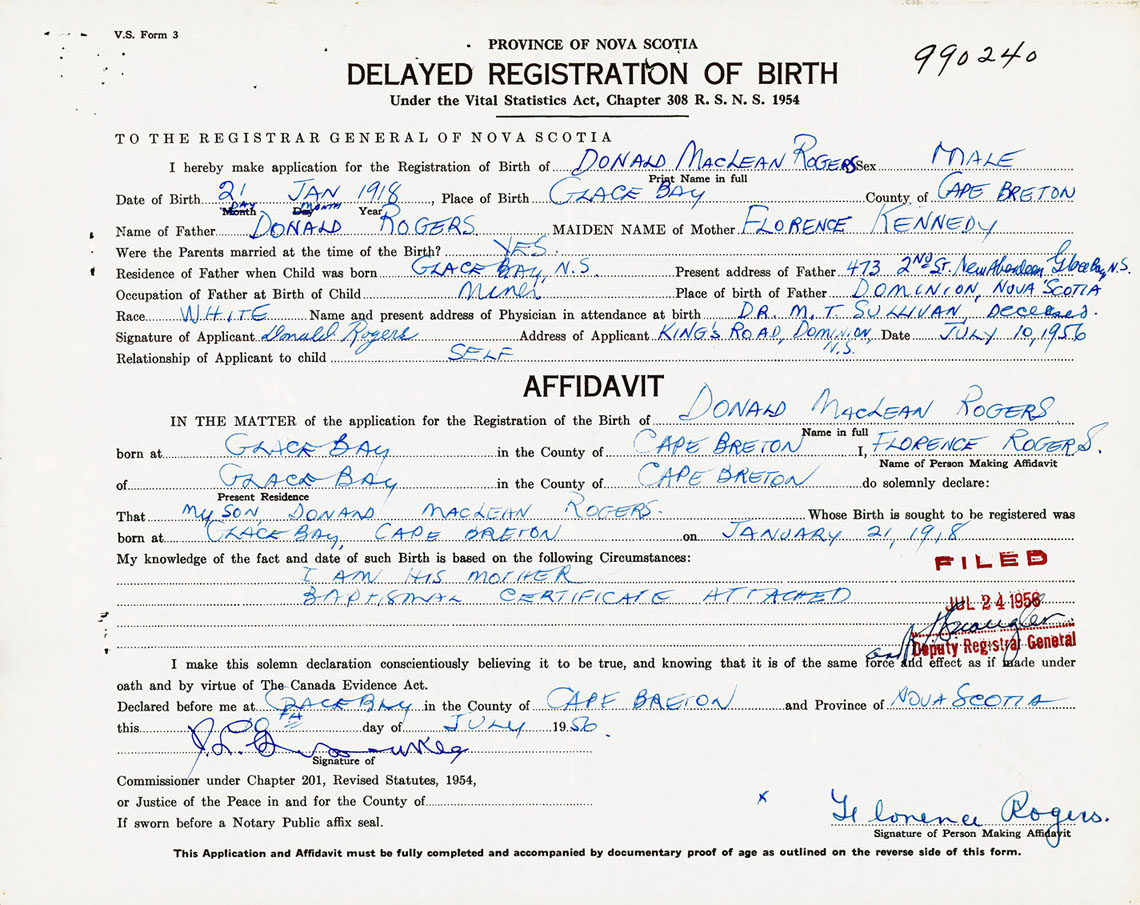 V.S. Form 3
PROVINCE OF NOVA SCOTIA
990240
DELAYED REGISTRATION OF BIRTH
Under the Vital Statistics Act, Chapter 308 R. S. N. S. 1954
TO THE REGISTRAR GENERAL OF NOVA SCOTIA
I hereby make application for the Registration of Birth of DONALD MACLEAN ROGERS Sex MALE
Print Name in full
Date of Birth 21 JAN 1918, Place of Birth GLACE BAY County of CAPE BRETON
Month DAY Day MONTH Year
Name of Father DONALD ROGERS MAIDEN NAME of Mother FLORENCE KENNEDY
Were the Parents married at the time of the Birth? YES
Residence of Father when Child was born GLACE BAY, N.S. Present address of Father 473 2ND ST. New Aberdeen Glace Bay, N.S.
Occupation of Father at Birth of Child Miner Place of birth of Father DOMINION, NOVA SCOTIA
Race WHITE Name and present address of Physician in attendance at birth DR. M. T. SULLIVAN, Deceased.
Signature of Applicant Donald Rogers Address of Applicant KING'S ROAD, DOMINION, N.S. Date JULY 10, 1956
Relationship of Applicant to child SELF
AFFIDAVIT
IN THE MATTER of the application for the Registration of the Birth of DONALD MACLEAN ROGERS
Name in full
born at GLACE BAY in the County of CAPE BRETON I, FLORENCE ROGERS.
Name of Person Making Affidavit
of GLACE BAY in the County of CAPE BRETON do solemnly declare:
Present Residence
That MY SON, DONALD MACLEAN ROGERS. Whose Birth is sought to be registered was
born at GLACE BAY, CAPE BRETON on JANUARY 21, 1918
My knowledge of the fact and date of such Birth is based on the following Circumstances:
I AM HIS MOTHER
BAPTISMAL CERTIFICATE ATTACHED
FILED
JUL 24 1956
Deputy Registrar General
I make this solemn declaration conscientiously believing it to be true, and knowing that it is of the same force and effect as if made under
oath and by virtue of The Canada Evidence Act.
Declared before me at GLACE BAY in the County of CAPE BRETON and Province of NOVA SCOTIA
this TH day of JULY 1956.
Signature of
Commissioner under Chapter 201, Revised Statutes, 1954,
or Justice of the Peace in and for the County of
If sworn before a Notary Public affix seal.
x Florence Rogers.
Signature of Person Making Affidavit
This Application and Affidavit must be fully completed and accompanied by documentary proof of age as outlined on the reverse side of this form.